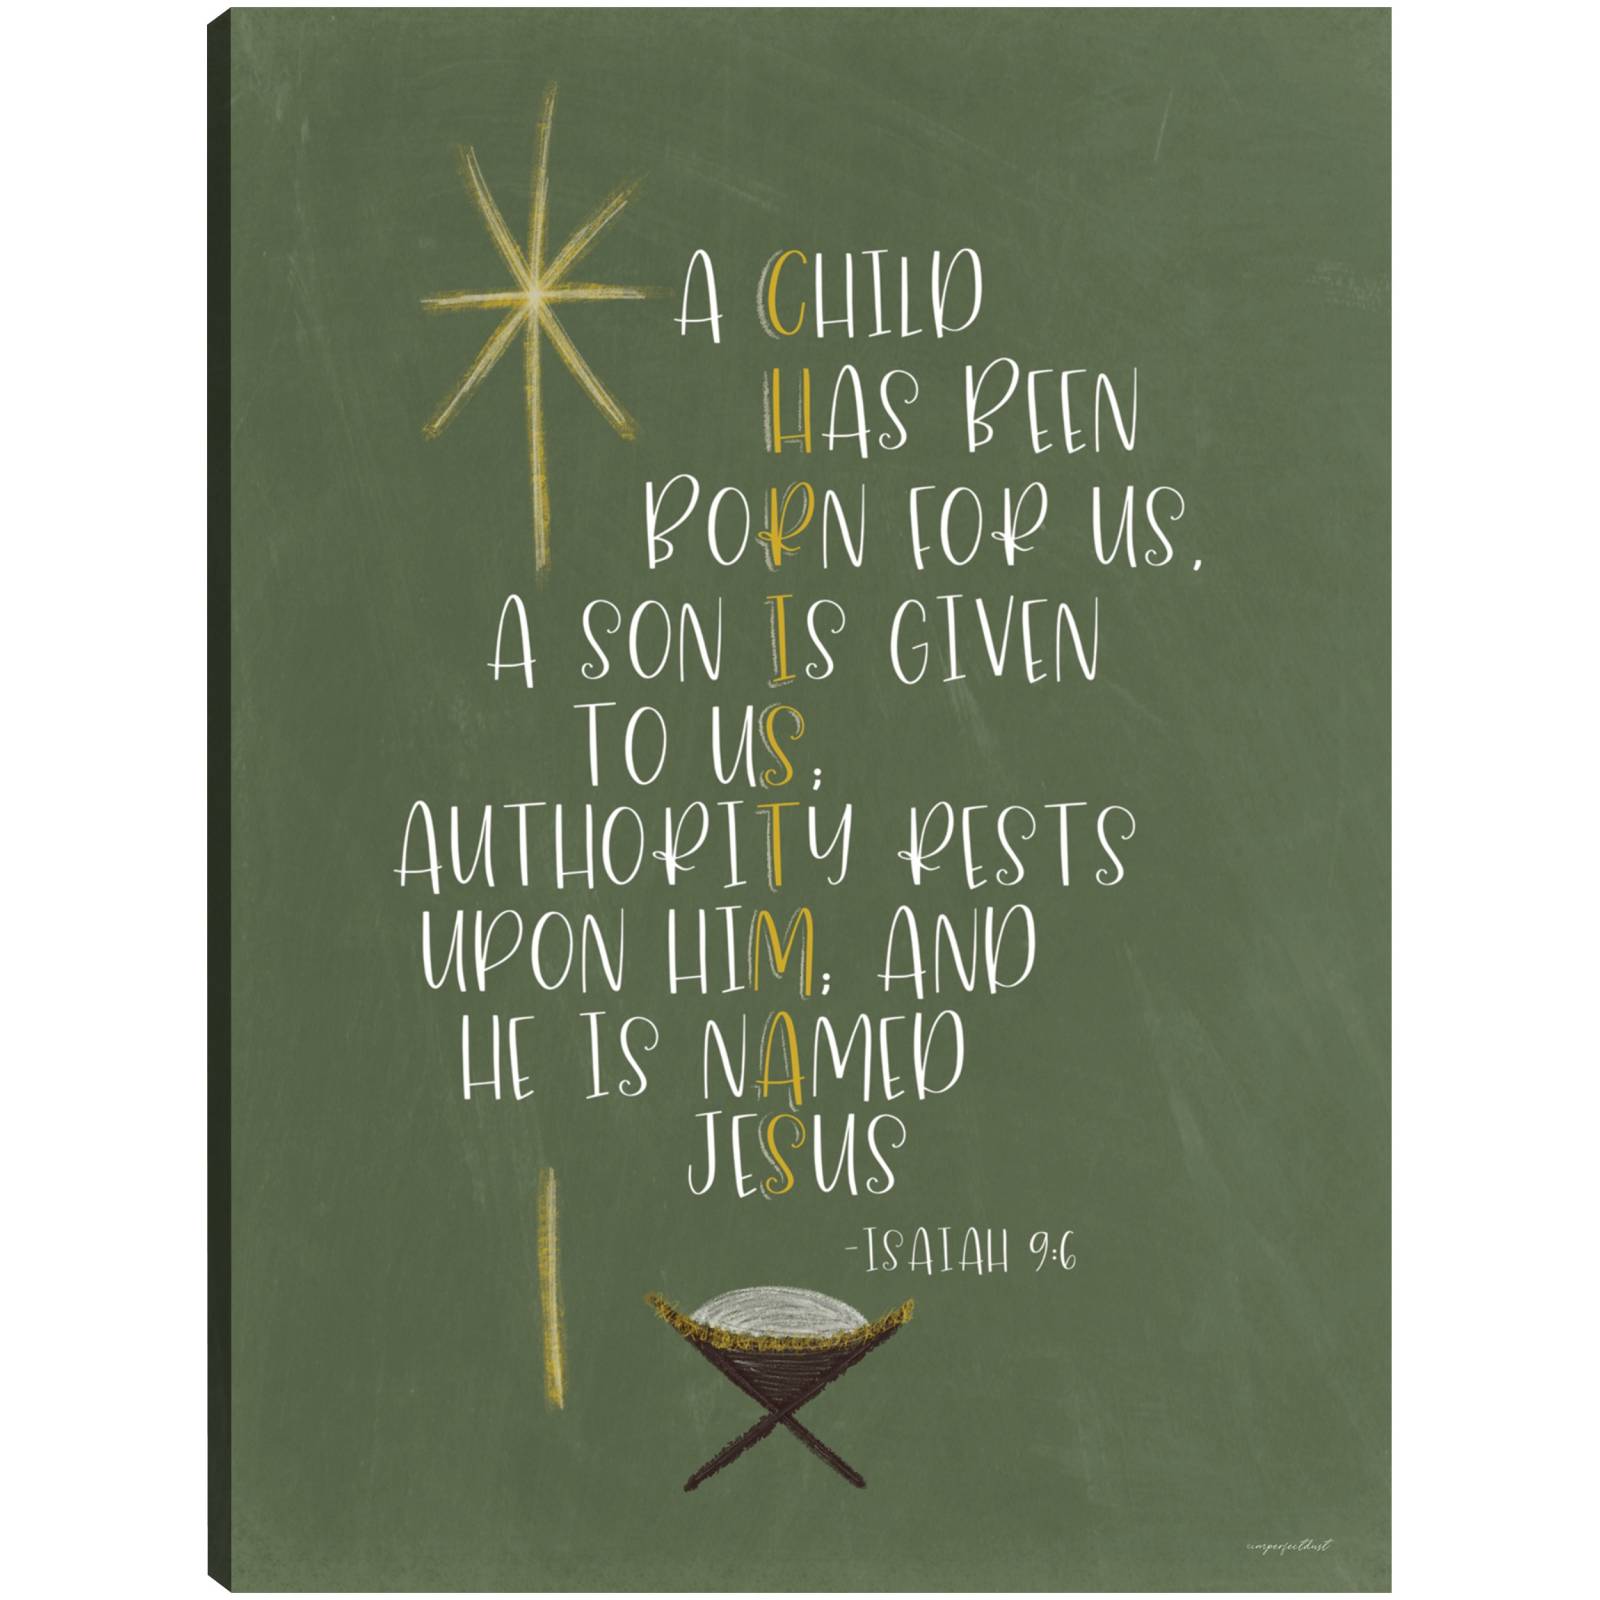 A CHILD
HAS BEEN
BORN FOR US,
A SON IS GIVEN
TO US;
AUTHORITY RESTS
UPON HIM; AND
HE IS NAMED
JESUS
-ISAIAH 9:6
imperfectdust